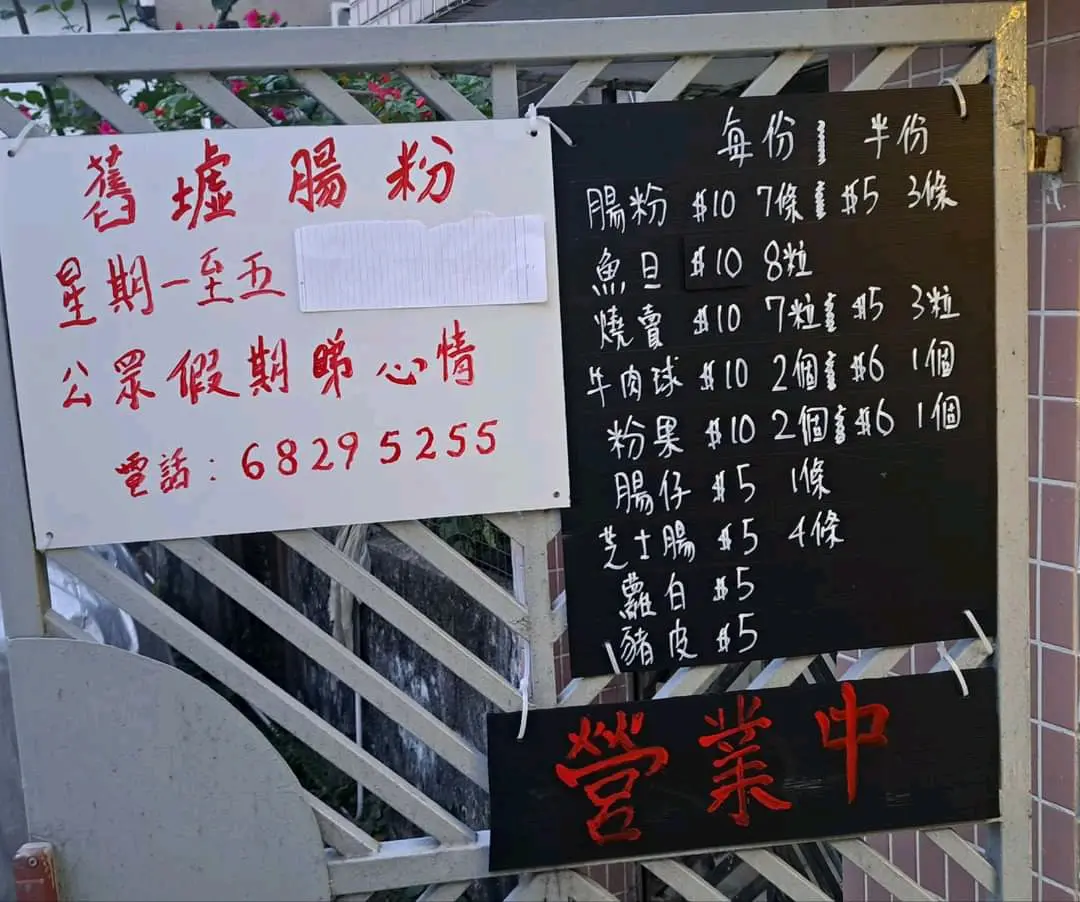 舊墟腸粉
星期一至五
公眾假期睇心情
電話：68295255
每份 半份
腸粉 $10 7條 $5 3條
魚旦 $10 8粒
燒賣 $10 7粒 $5 3粒
牛肉球 $10 2個 $6 1個
粉果 $10 2個 $6 1個
腸仔 $5 1條
芝士腸 $5 4條
蘿白 $5
豬皮 $5
營業中